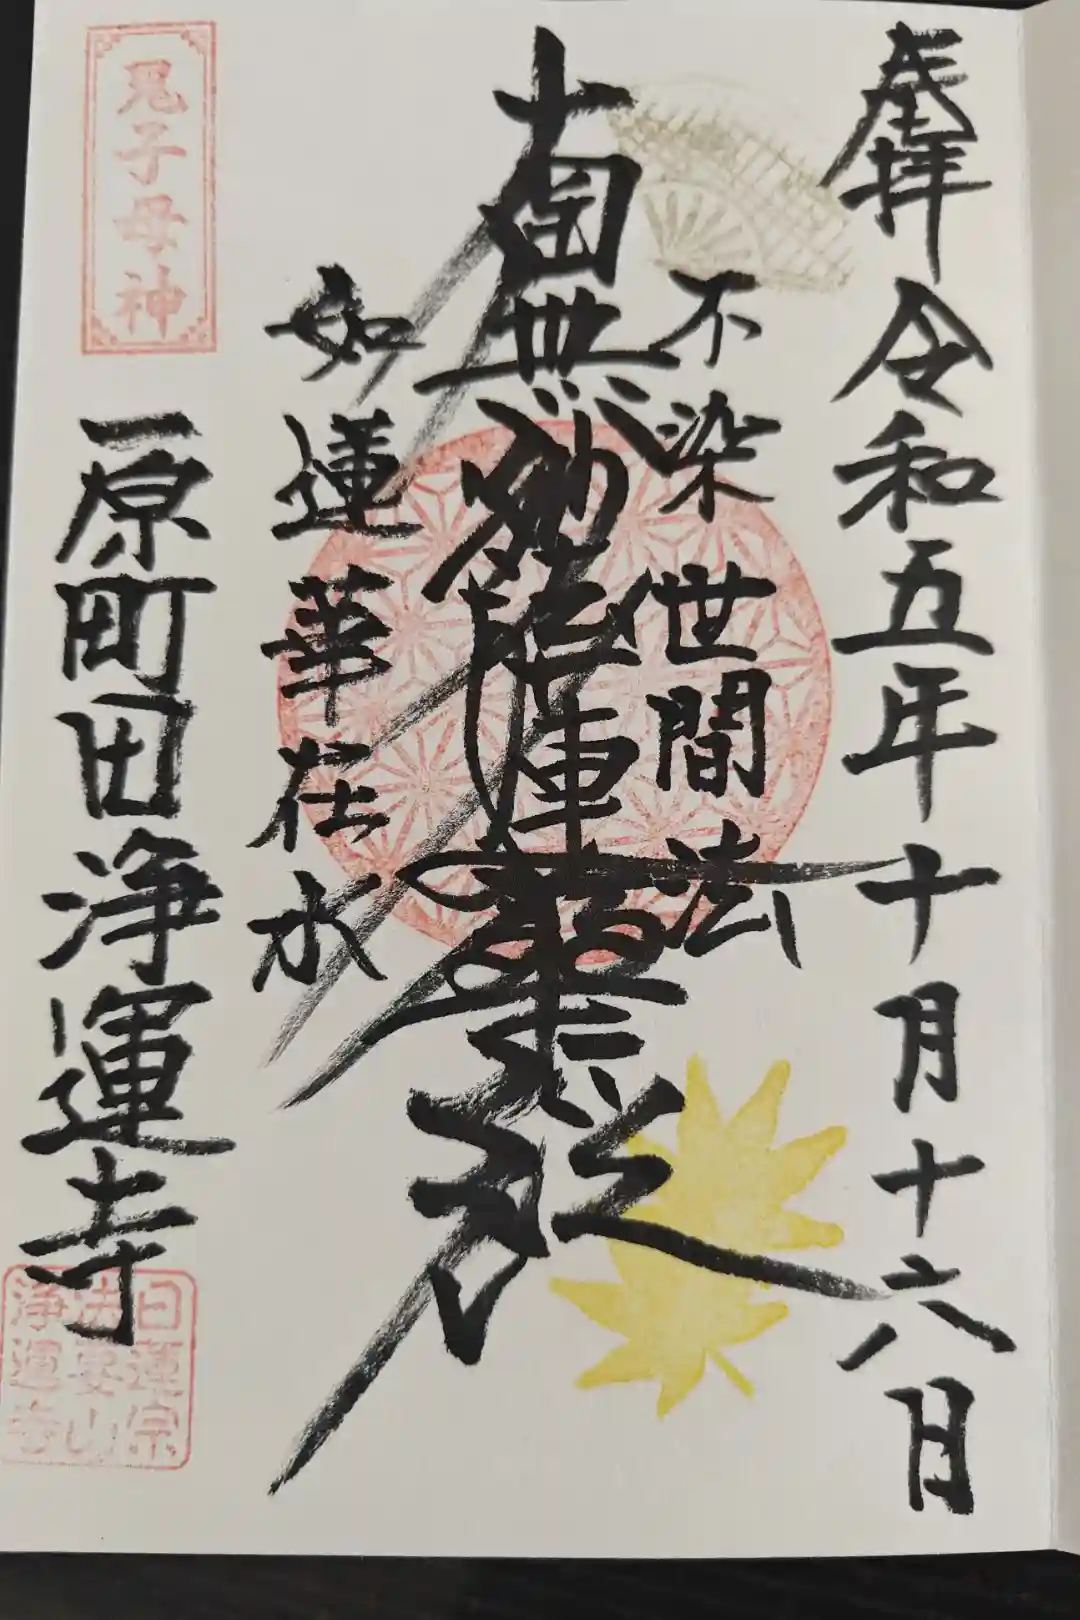 奉拝 令和五年十月十六日
不染世間法
南無妙法蓮華経
如蓮華在水
鬼子母神
原町田浄運寺
日蓮宗
法要山
浄運寺